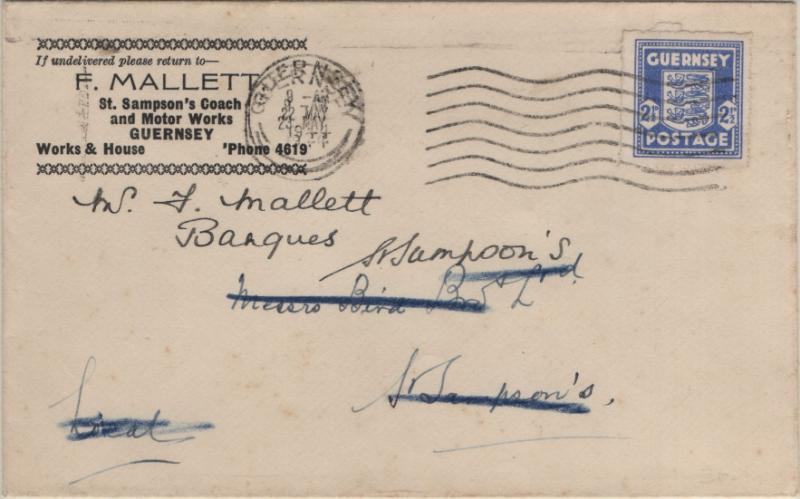 If undelivered please return to—
F. MALLETT
St. Sampson's Coach
and Motor Works
GUERNSEY
Works & House 'Phone 4619
GUERNSEY
9 - AM
22 MAY
GUERNSEY
2½D 2½D
POSTAGE
Mr. F. Mallett
Banques
St Sampson's
Messrs Bird Bros Ltd.
St Sampson's.
Local